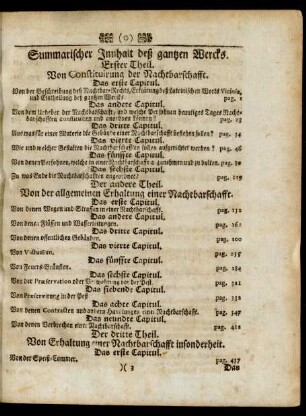 (o)
Summarischer Innhalt deß gantzen Wercks.
Erster Theil.
Von Constituirung der Nachtbarschafft.
Das erste Capitul.
Von der Beschreibung deß Nachtbar-Rechts, Erklärung deß Lateinischen Worts Vicinia,
und Eintheilung deß gantzen Wercks. pag. 1
Das andere Capitul.
Von dem Urheber der Nachtbarschafft, und welche Personen heutiges Tages Nacht-
barschafften constituiren und anordnen können? pag. 19
Das dritte Capitul.
Aus was für einer Materie die Gebäude einer Nachtbarschafft bestehen sollen? pag. 34
Das vierte Capitul.
Wie und in welcher Gestalten die Nachtbarschafften sollen aufgerichtet werden? pag. 46
Das fünffte Capitul.
Von denen Personen, welche in einer Nachtbarschafft anzunehmen und zu dulten. pag. 50
Das sechste Capitul.
Zu was Ende die Nachtbarschafften angeordnet?
Der andere Theil.
Von der allgemeinen Erhaltung einer Nachtbarschafft.
Das erste Capitul.
Von denen Wegen und Strassen in einer Nachtbarschafft. pag. 132
Das andere Capitul.
Von denen Flüssen und Wasserleitungen. pag.
Das dritte Capitul.
Von denen öffentlichen Gebäuden. pag. 100
Das vierte Capitul.
Von Victualien. pag.
Das fünffte Capitul.
Von Feuers-Brünsten. pag.
Das sechste Capitul.
Von der Præservation oder Verwahrung vor der Pest. pag.
Das siebende Capitul.
Von Conservirung in der Pest pag.
Das achte Capitul.
Von denen Contracten und andern Handlungen einer Nachtbarschafft. pag.
Das neundte Capitul.
Von denen Verbrechen einer Nachtbarschafft. pag. 412
Der dritte Theil.
Von Erhaltung einer Nachtbarschafft insonderheit.
Das erste Capitul.
Von der Speiß-Cammer. pag. 437
)( 2 Das